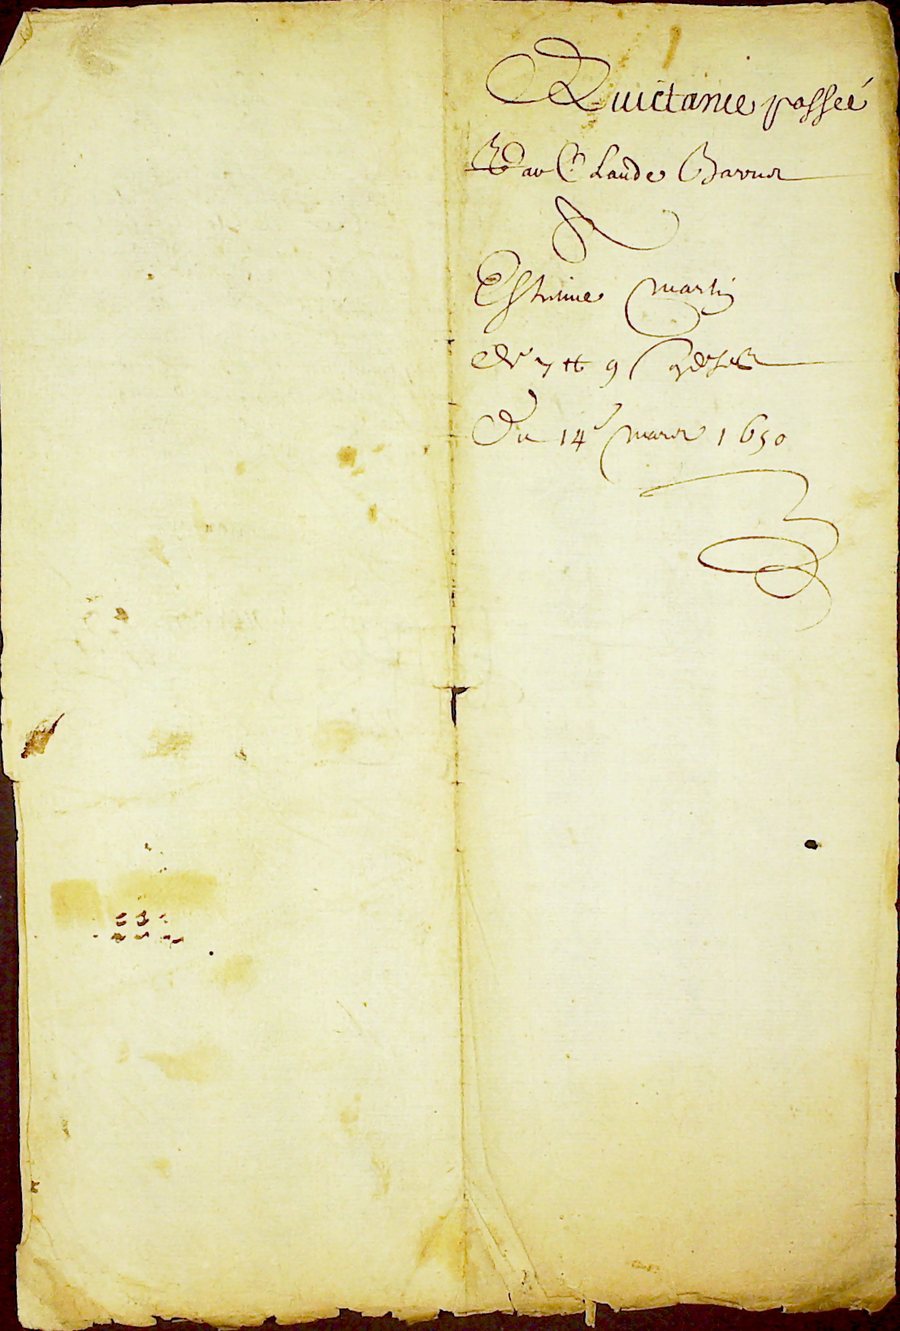 Quictance passeé
Par Claude
A
Estienne Martin
de 7 tt 9
Du 14e mars 1650